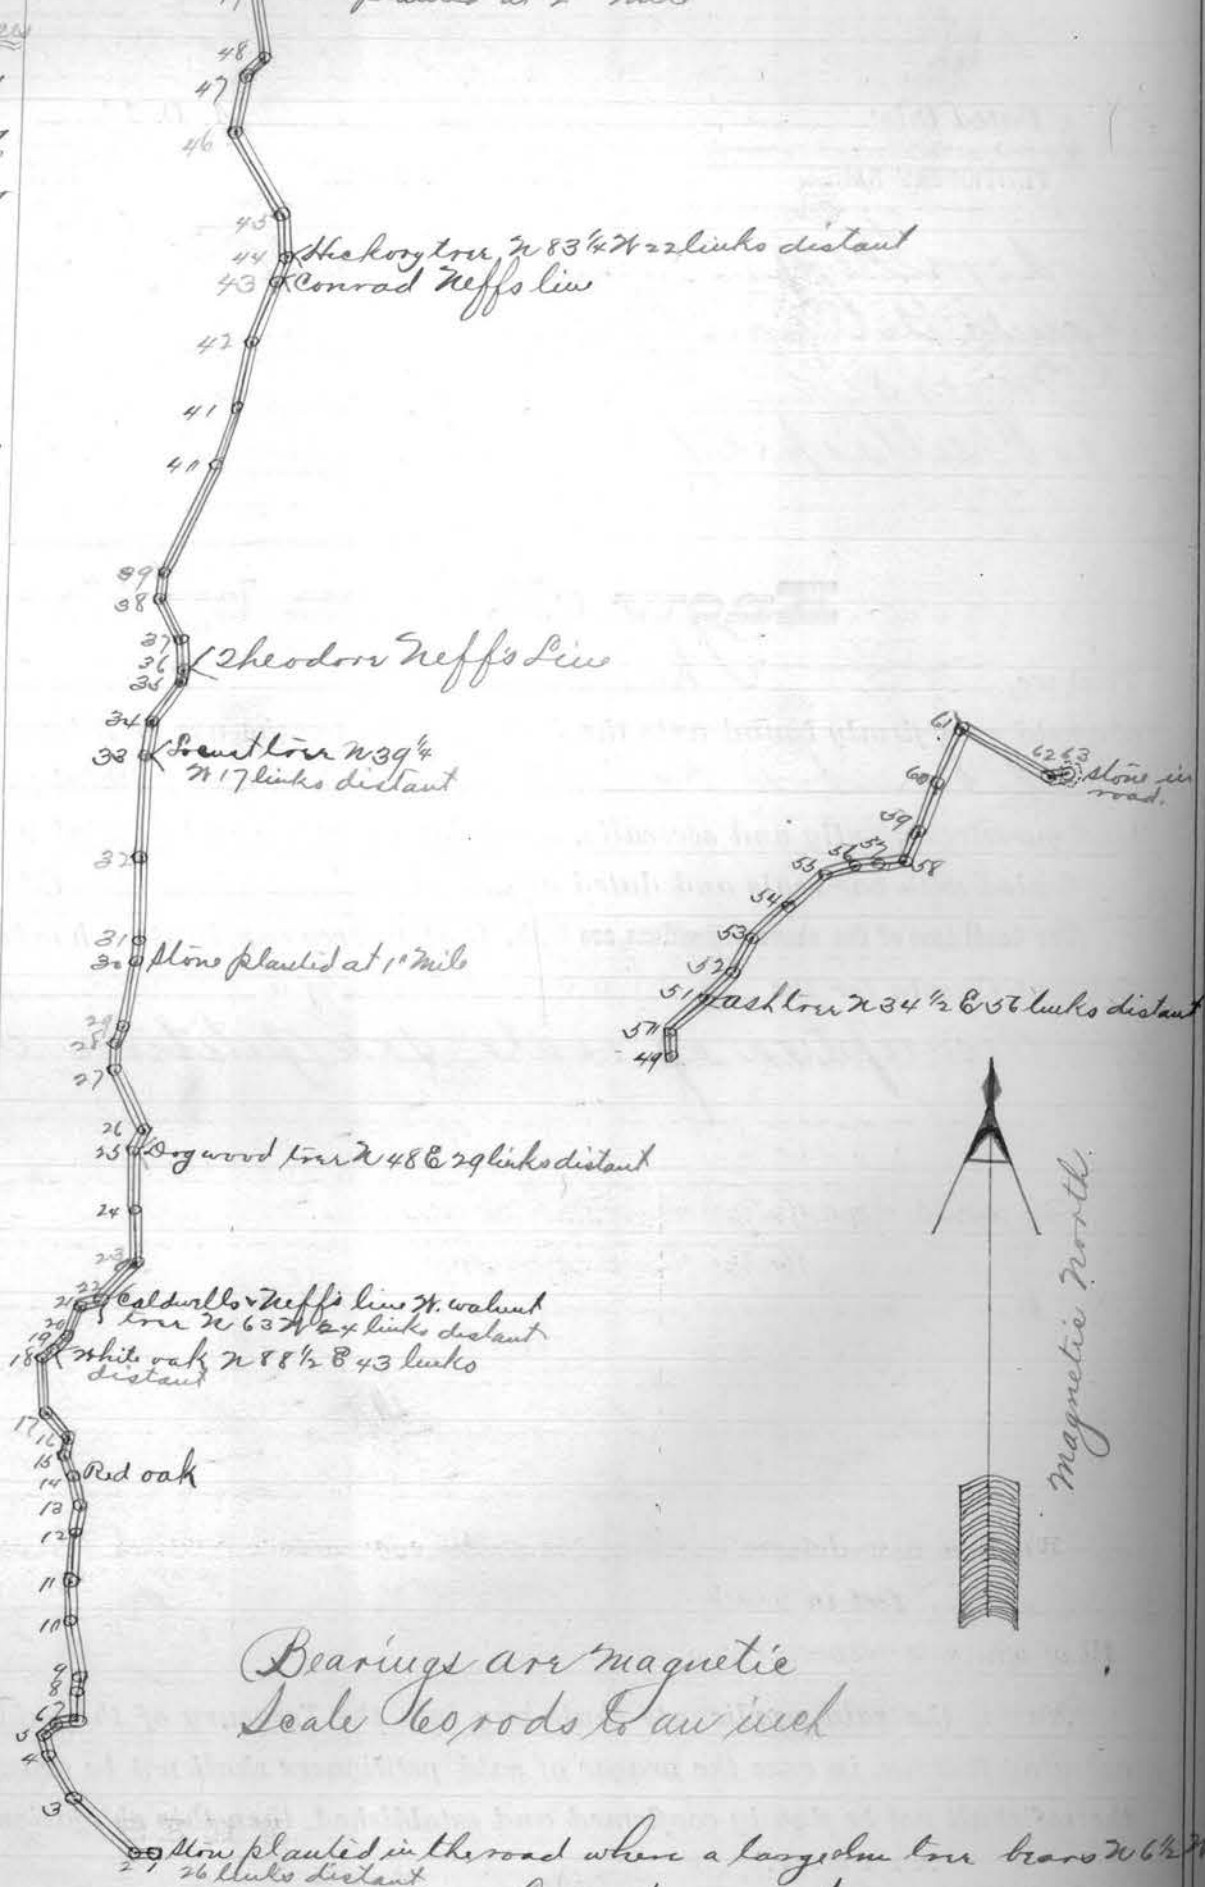 48
47
46
45
44 Hickory tree N 83 1/4 W 22 links distant
43 Conrad Neffs line
42
41
40
39
38
37
36 Theodore Neff's Line
35
34
33 Locust tree N 39 1/4
W 17 links distant
32
31
30 Stone planted at 1st Mile
29
28
27
26
25 Dogwood tree N 48 E 29 links distant
24
23
22
21 Caldwells & Neff's line W. walnut
20 tree N 63 W 24 links distant
19
18 White oak N 88 1/2 E 43 links
distant
17
16
15
14 Red oak
13
12
11
10
9
8
7
6
5
4
3
2 1 Stone planted in the road where a large elm tree bears N 6 1/2 W
26 links distant
61
62 63 stone in
road.
60
59
58
57
56
55
54
53
52
51 ash tree N 34 1/2 E 56 links distant
50
49
Magnetic North.
Bearings are magnetic
Scale 60 rods to an inch